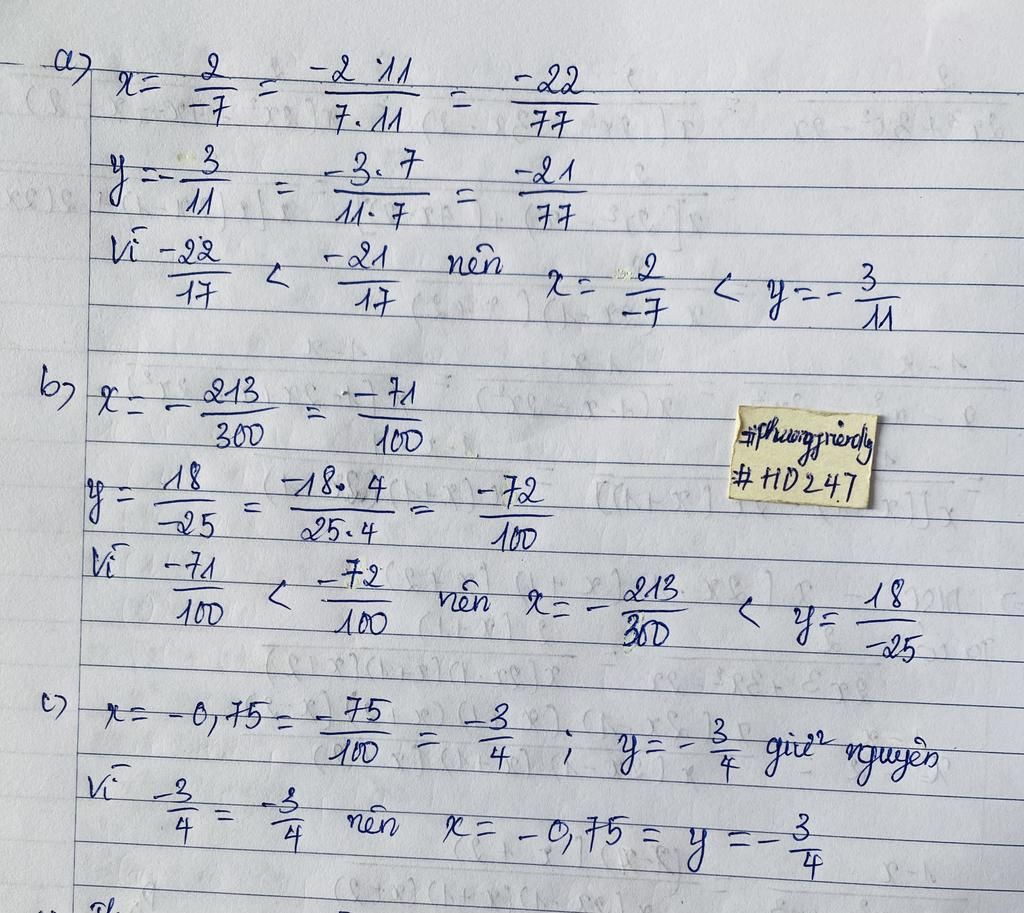 a) x = 2/-7 = -2·11/7·11 = -22/77
y = -3/11 = -3·7/11·7 = -21/77
Vì -22/17 < -21/17 nên x = 2/-7 < y = -3/11
b) x = -213/300 = -71/100
#HD247
y = 18/-25 = -18·4/25·4 = -72/100
Vì -71/100 < -72/100 nên x = -213/300 < y = 18/-25
c) x = -0,75 = -75/100 = -3/4 ; y = -3/4 giữ nguyên
Vì -3/4 = -3/4 nên x = -0,75 = y = -3/4